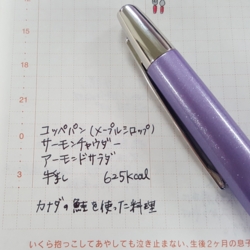 1
コッペパン(メープルシロップ)
サーモンチャウダー
アーモンドサラダ
牛乳 625kcal
カナダの鮭を使った料理
いくら抱っこしてあやしても泣き止まない。生後2ヶ月の息子